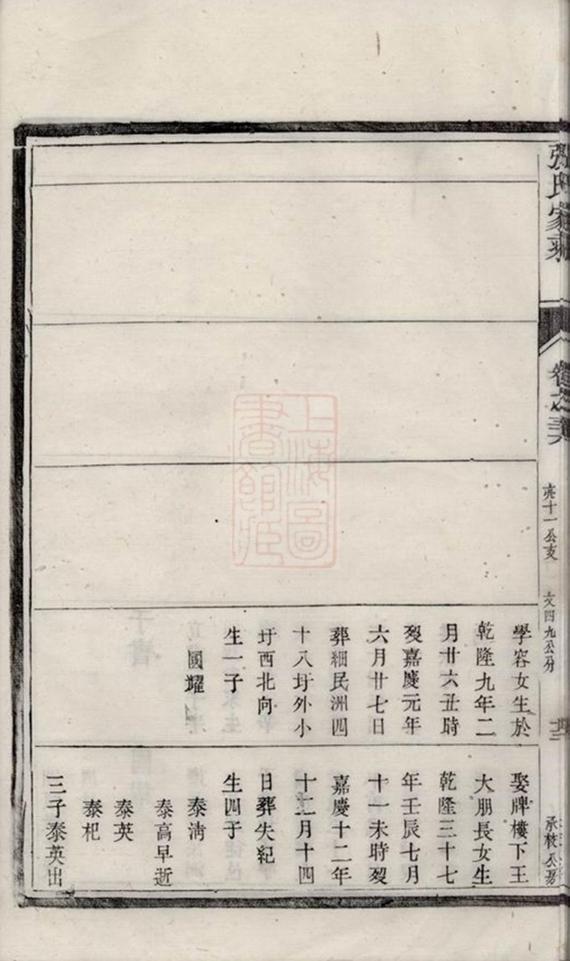 張氏家乘
卷之
公支
文四九公房
學容女生於
乾隆九年二
月廿六丑時
歿嘉慶元年
六月廿七日
葬細民洲四
十八圩外小
圩西北向
生一子
國耀
娶牌樓下王
大朋長女生
乾隆三十七
年壬辰七月
十一未時歿
嘉慶十二年
十二月十四
日葬失紀
生四子
泰清
泰高早逝
泰英
泰杞
三子泰英出
上海圖書館藏